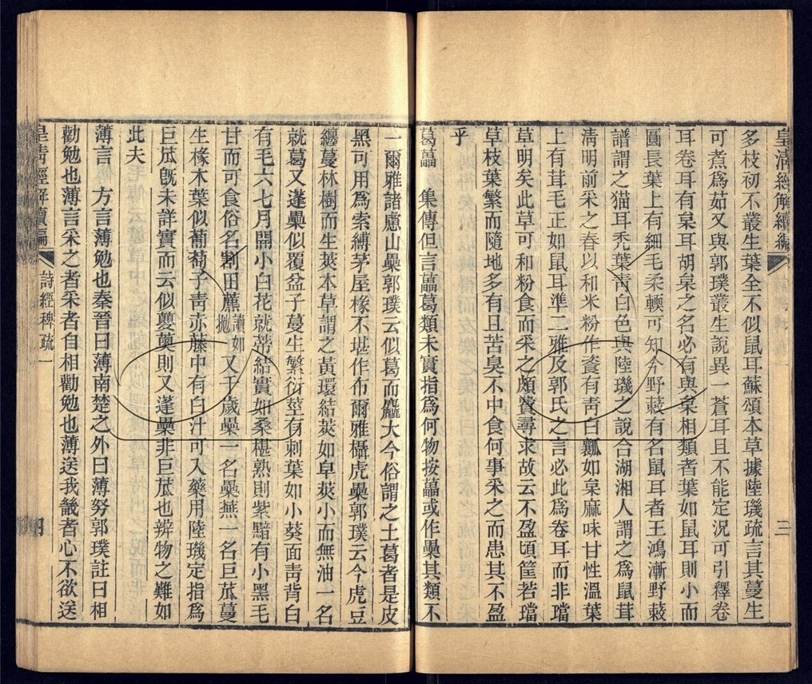 皇淸經解續編 三
多枝初不叢生葉全不似鼠耳蘇頌本草據陸璣疏言其蔓生
可煮爲茹又與郭璞叢生說異一蒼耳且不能定況可引釋卷
耳卷耳有枲耳胡枲之名必有與枲相類者葉如鼠耳則小而
圓長葉上有細毛柔輭可知今野蔌有名鼠耳者王鴻漸野蔌
譜謂之猫耳禿葉靑白色與陸璣之說合湖湘人謂之爲鼠茸
淸明前采之舂以和米粉作餈有靑白瓤如枲麻味甘性溫葉
上有茸毛正如鼠耳準二雅及郭氏之言必此爲卷耳而非璫
草明矣此草可和粉食而采之頗費尋求故云不盈頃筐若璫
草枝葉繁而隨地多有且苦臭不中食何事采之而患其不盈
乎
葛藟 集傳但言藟葛類未實指爲何物按藟或作虆其類不
一爾雅諸慮山虆郭璞云似葛而麤大今俗謂之土葛者是皮
黑可用爲索縛茅屋椽不堪作布爾雅欇虎虆郭璞云今虎豆
纏蔓林樹而生莢本草謂之黃環結莢如皁莢小而無油一名
就葛又蓬虆似覆盆子蔓生繁衍莖有刺葉如小葵面靑背白
有毛六七月開小白花就蔕結實如桑椹熟則紫黯有小黑毛
甘而可食俗名割田藨讀如拋又千歲虆一名虆蕪一名巨苽蔓
生椽木葉似葡萄子靑赤藤中有白汁可入藥用陸璣定指爲
巨苽旣未詳實而云似蘡薁則又蓬虆非巨苽也辨物之難如
此夫
薄言 方言薄勉也秦晉曰薄南楚之外曰薄努郭璞註曰相
勸勉也薄言采之者采者自相勸勉也薄送我畿者心不欲送
皇淸經解續編 詩經稗疏一